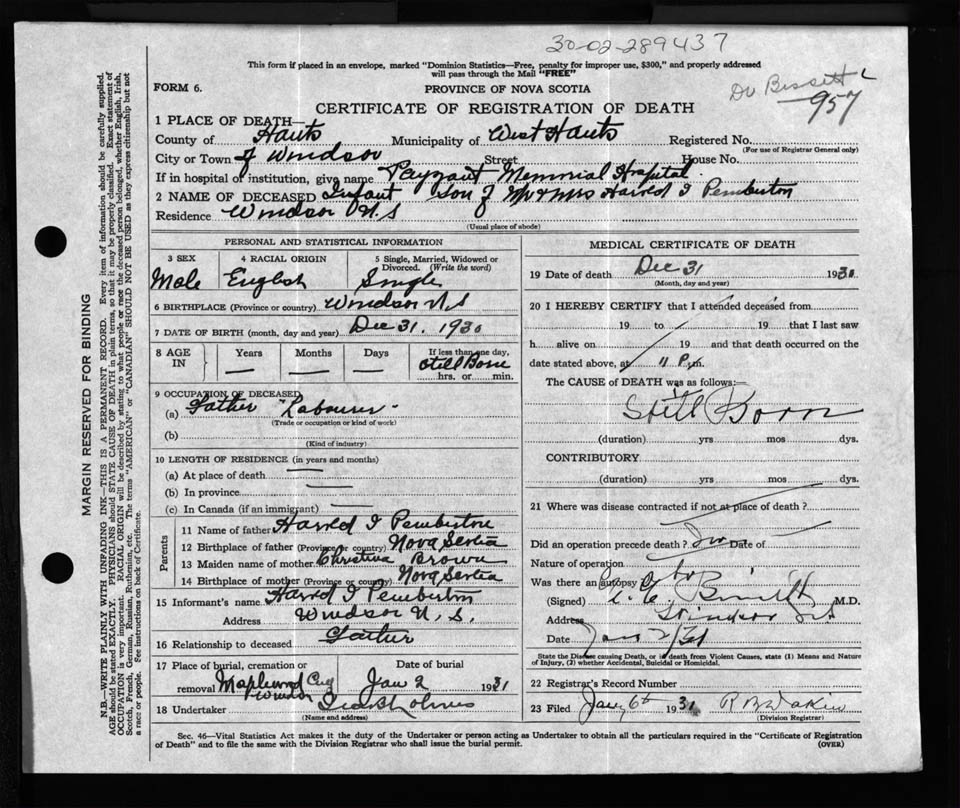 30-02-289437
This form if placed in an envelope, marked "Dominion Statistics—Free, penalty for improper use, $300," and properly addressed
will pass through the Mail "FREE"
FORM 6.
PROVINCE OF NOVA SCOTIA
Dr Bissett
957
CERTIFICATE OF REGISTRATION OF DEATH
1 PLACE OF DEATH—
County of Hants Municipality of West Hants Registered No.
(For use of Registrar General only)
City or Town of Windsor Street House No.
If in hospital of institution, give name Payzant Memorial Hospital
2 NAME OF DECEASED Infant son of Mr & Mrs Harold I Pemberton
Residence Windsor N.S
(Usual place of abode)
PERSONAL AND STATISTICAL INFORMATION
3 SEX 4 RACIAL ORIGIN 5 Single, Married, Widowed or
Divorced. (Write the word)
Male English Single
6 BIRTHPLACE (Province or country) Windsor N.S
7 DATE OF BIRTH (month, day and year) Dec 31. 1930
8 AGE IN Years Months Days If less than one day,
— — — Still Born
hrs. or min.
9 OCCUPATION OF DECEASED
(a) Father Labourer -
(Trade or occupation or kind of work)
(b)
(Kind of industry)
10 LENGTH OF RESIDENCE (in years and months)
(a) At place of death —
(b) In province —
(c) In Canada (if an immigrant) —
Parents
11 Name of father Harold I Pemberton
12 Birthplace of father (Province or country) Nova Scotia
13 Maiden name of mother Christina Brown
14 Birthplace of mother (Province or country) Nova Scotia
15 Informant's name Harold I Pemberton
Address Windsor N.S.
16 Relationship to deceased Father
17 Place of burial, cremation or Date of burial
removal Maplewood Cem Jan 2 1931
Windsor
18 Undertaker
(Name and address)
MEDICAL CERTIFICATE OF DEATH
19 Date of death Dec 31 1930
(Month, day and year)
20 I HEREBY CERTIFY that I attended deceased from
19 to 19 that I last saw
h alive on 19 and that death occurred on the
date stated above, at 11 P.m.
The CAUSE of DEATH was as follows:—
Still Born
(duration) yrs mos dys.
CONTRIBUTORY
(duration) yrs mos dys.
21 Where was disease contracted if not at place of death?
Did an operation precede death? Date of
Nature of operation
Was there an autopsy No
(Signed) Bissett M.D.
Address Windsor N.S
Date Jan 2/31
State the Disease causing Death, or in death from Violent Causes, state (1) Means and Nature
of Injury, (2) whether Accidental, Suicidal or Homicidal.
22 Registrar's Record Number
23 Filed Jany 6th 1931
(Division Registrar)
Sec. 46—Vital Statistics Act makes it the duty of the Undertaker or person acting as Undertaker to obtain all the particulars required in the "Certificate of Registration
of Death" and to file the same with the Division Registrar who shall issue the burial permit.
(OVER)
MARGIN RESERVED FOR BINDING
N.B.—WRITE PLAINLY WITH UNFADING INK—THIS IS A PERMANENT RECORD. Every item of information should be carefully supplied.
AGE should be stated EXACTLY. PHYSICIANS should STATE CAUSE OF DEATH in plain terms, so that it may be properly classified. Exact statement of
OCCUPATION is very important. RACIAL ORIGIN will be described by stating to what people or race the deceased person belonged, whether English, Irish,
Scotch, French, German, Russian, Ruthenian, etc. The terms "AMERICAN" or "CANADIAN" SHOULD NOT BE USED as they express citizenship but not
a race or people. See instructions on back of Certificate.